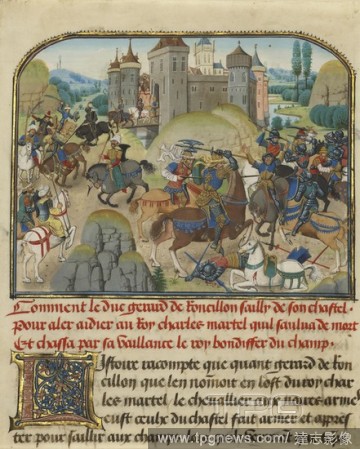 Comment le duc gerard de Roncillon sailly de son chastel
pour aler aidier au Roy charles martel quil saulua de mort
Et chassa par sa Vaillance le roy bondiffer du champ.
Listoire racompte que quant gerard de ron
cillon que len nomoit en lost du roy char
les martel le cheuallier aux noires armes
eust
du chastel fait armer et appres
ter pour saillir aux
www.tpgnews.com/ 達志影像